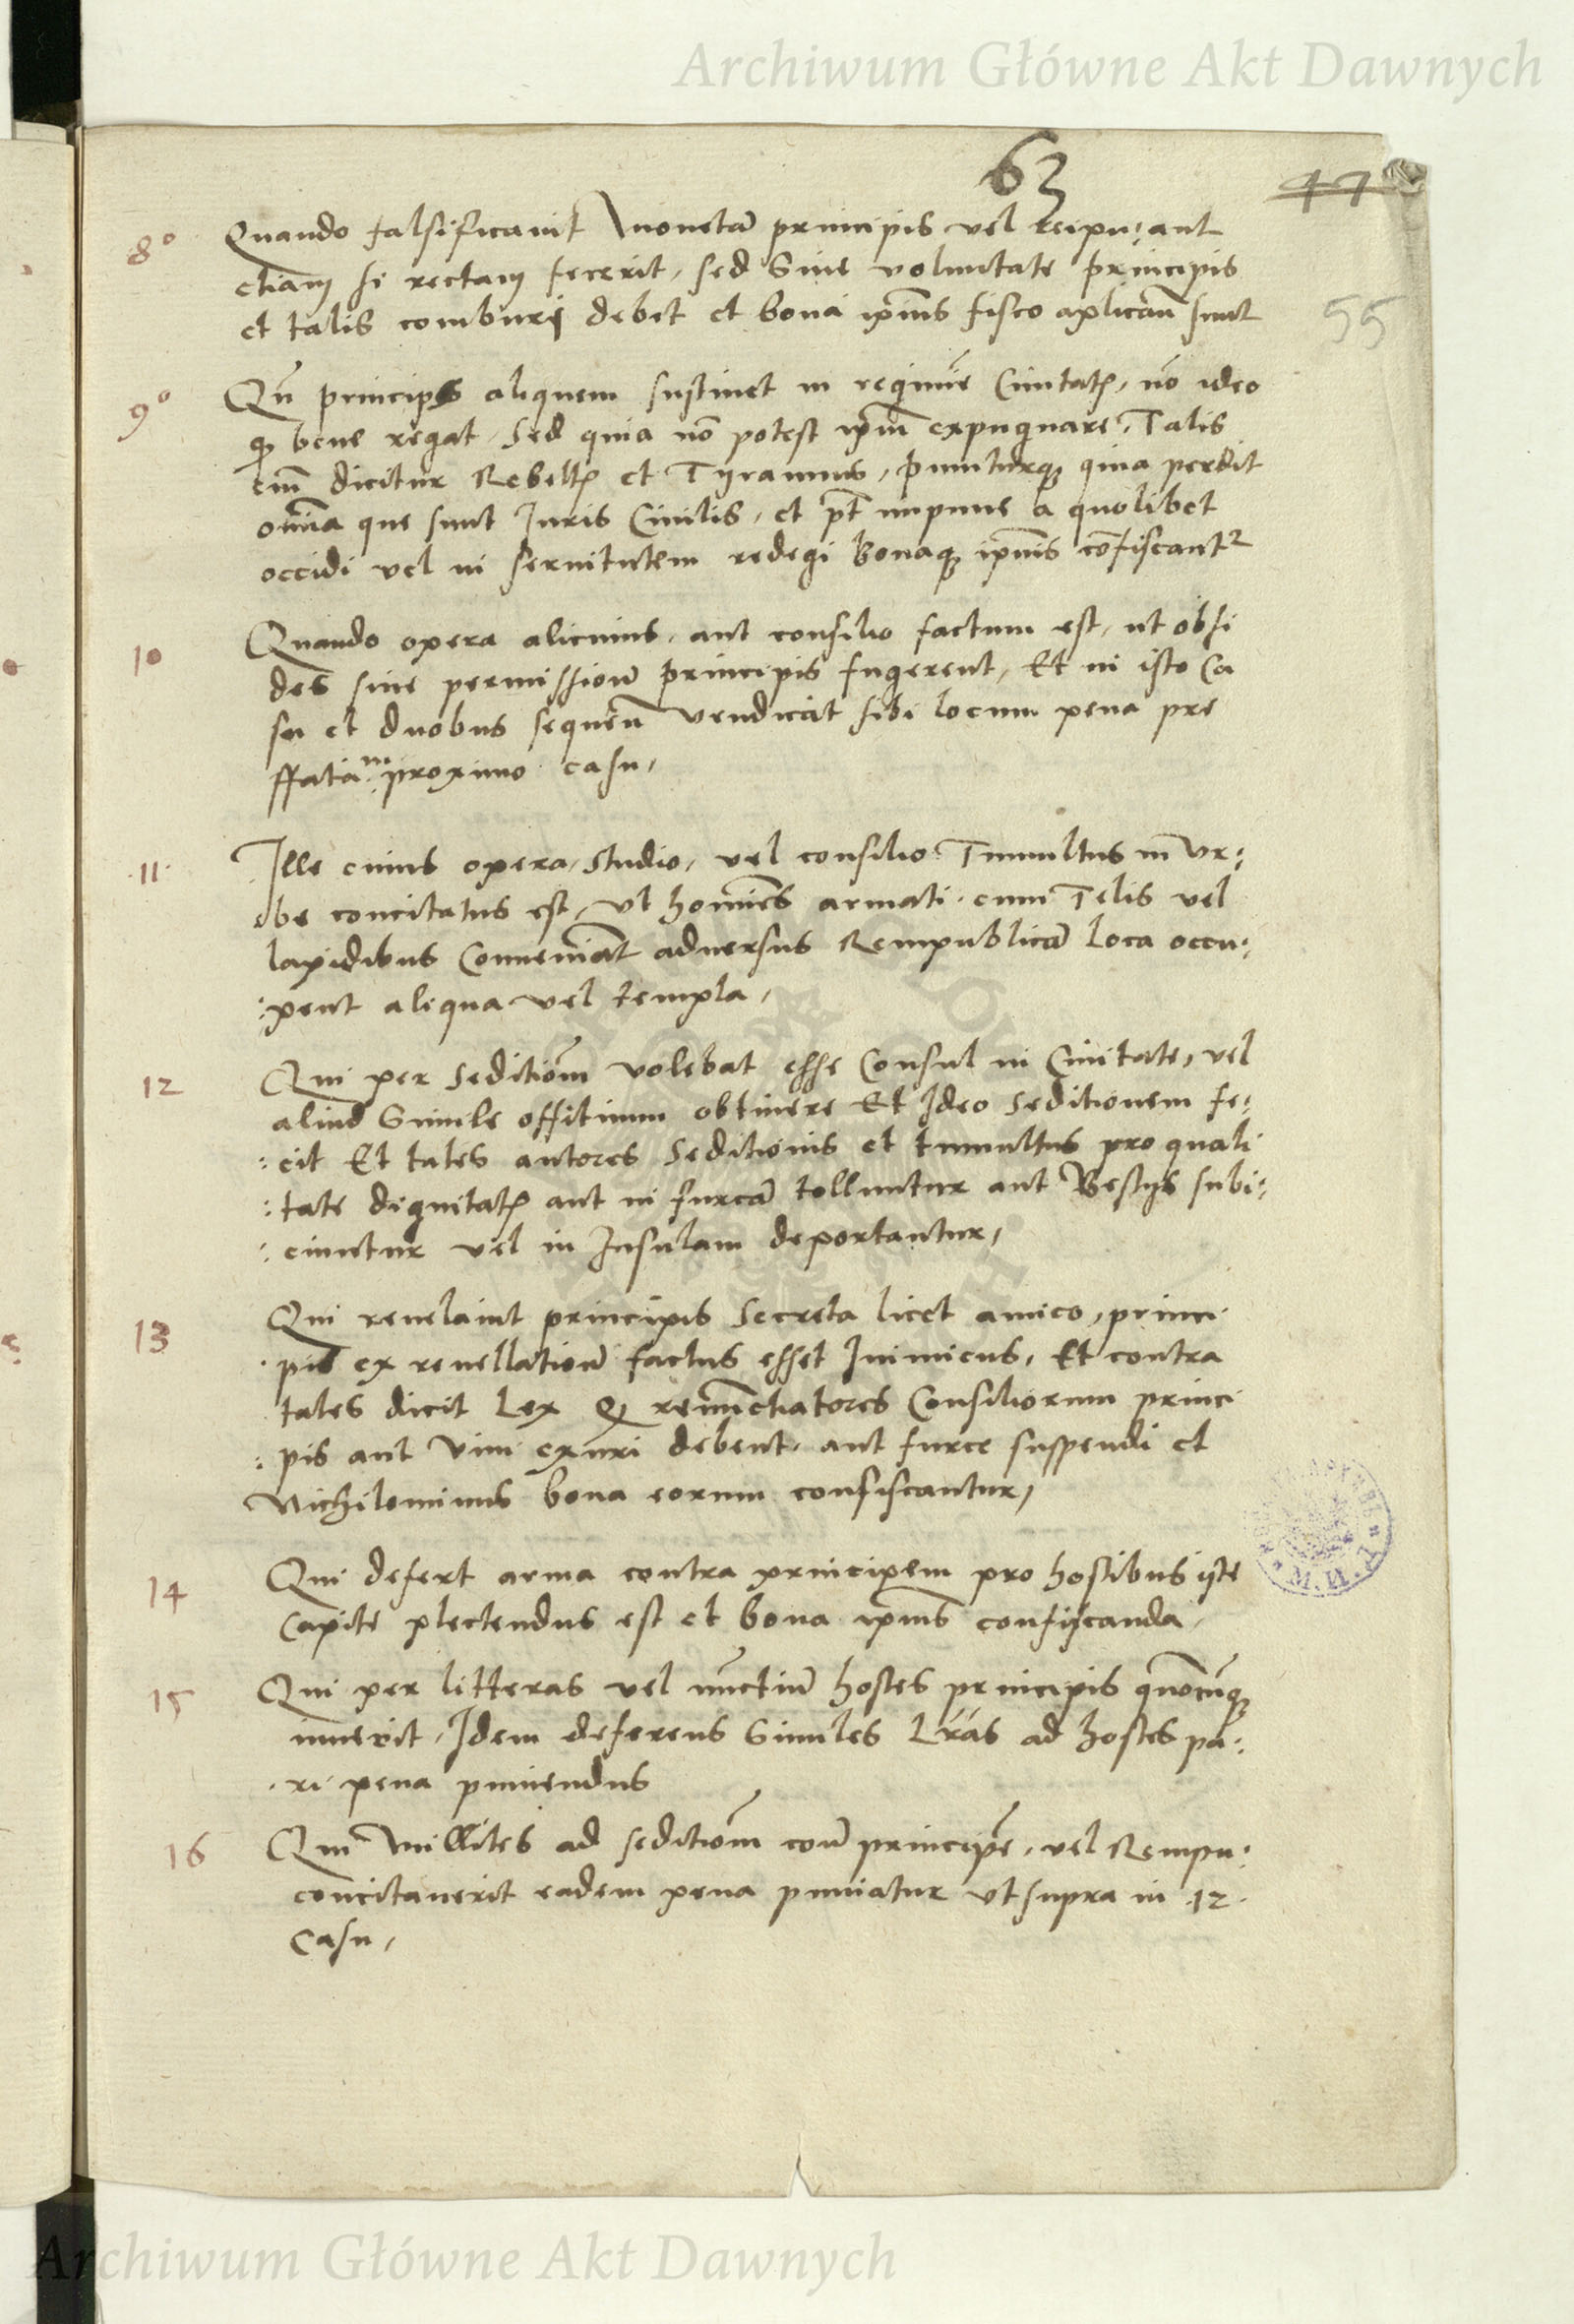 Archiwum Główne Akt Dawnych
63
47
55
8° Quando falsificavit monetā principis vel reipu: aut
etiam si rectam fecerit, sed Sine voluntate principis
et talis comburi debet et bona ipīus fisco aplican̄ sunt
9° Qn̄ princips aliquem sustinet in regimīe Civitatꝭ, nō ideo
ꝙ bene regat, Sed quia nō potest ipm̄ expugnare, Talis
em̄ dicitur Rebellꝭ et Tÿrannus, puniturqꝫ quia perdit
omīa que sunt Iuris Civilis, et pt̄ impune a quolibet
occidi vel in servitutem redegi bonaqꝫ ipīus cōfiscantᷣ
10 Quando opera alicuius, aut consilio factum est, ut obsi
des sine permissiou᷑ principis fugerent, Et in isto Ca
su et duobus sequen̄ vendicāt sibi locum pena pre
ffata in proximo casu,
·11· Ille cuius opera, studio, vel consilio Tumultus in Vr:
be concitatus est, Vt homīes armati cum Telis vel
lapidibus Conveniāt adversus Rempublicā loca occu:
:pent aliqua vel templa,
12 Qui per Seditiōm volebat esse Consul in Civitate, vel
aliud Simile offitium obtinere Et Ideo seditionem fe:
:cit Et tales autores Seditionis et tumultus pro quali
:tate dignitatꝭ aut in furcā tolluntur aut Bestÿs subi:
:ciuntur vel in Insulam deportantur,
13 Qui revelavit principis Secreta licet amico, princi
·pis ex revellatiou᷑ factus esset Inimicus, Et contra
tales dicit Lex Ꝙ renūctiatores Consiliorum princi
:pis aut Vivi exuri debent, aut furce suspendi et
Nichilominus bona eorum confiscantur,
14 Qui defert arma contra principem pro hostibus iste
Capite plectendus est et bona ipīus confiscanda,
15 Qui per litteras vel nūctiū hostes principis quocūqꝫ
iuverit, Idem deferens Similes Lrās ad hostes pa:
·ri pena puniendus
16 Qui Millites ad seditiōm con̄ principē, vel Rempu:
concitaverit eadem pena puniatur Vt supra in ·12·
Casu,
Archiwum Główne Akt Dawnych